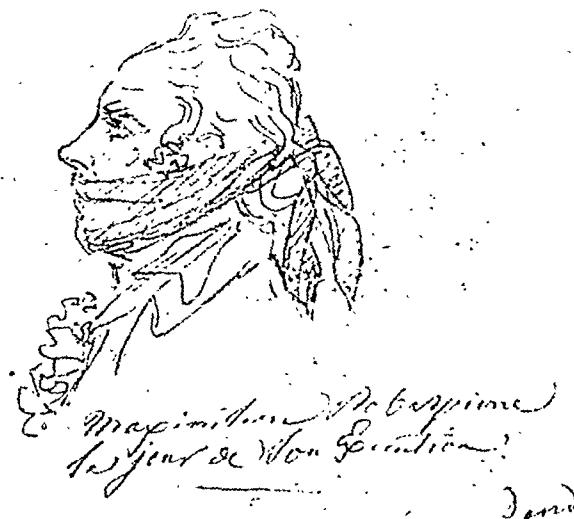 Maximilien Robespierre
le jour de son Execution.
David